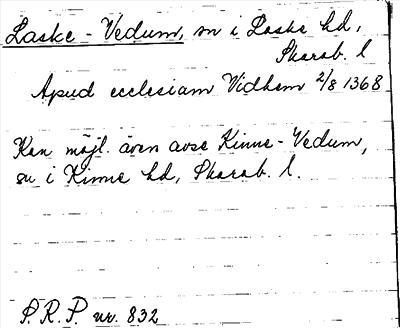 Laske-Vedum, sn i Laske hd,
Skarab. l
Apud ecclesiam Vidhem 2/8 1368
Kan möjl. även avse Kinne-Vedum,
sn i Kinne hd, Skarab. l.
P.R.P. nr. 832